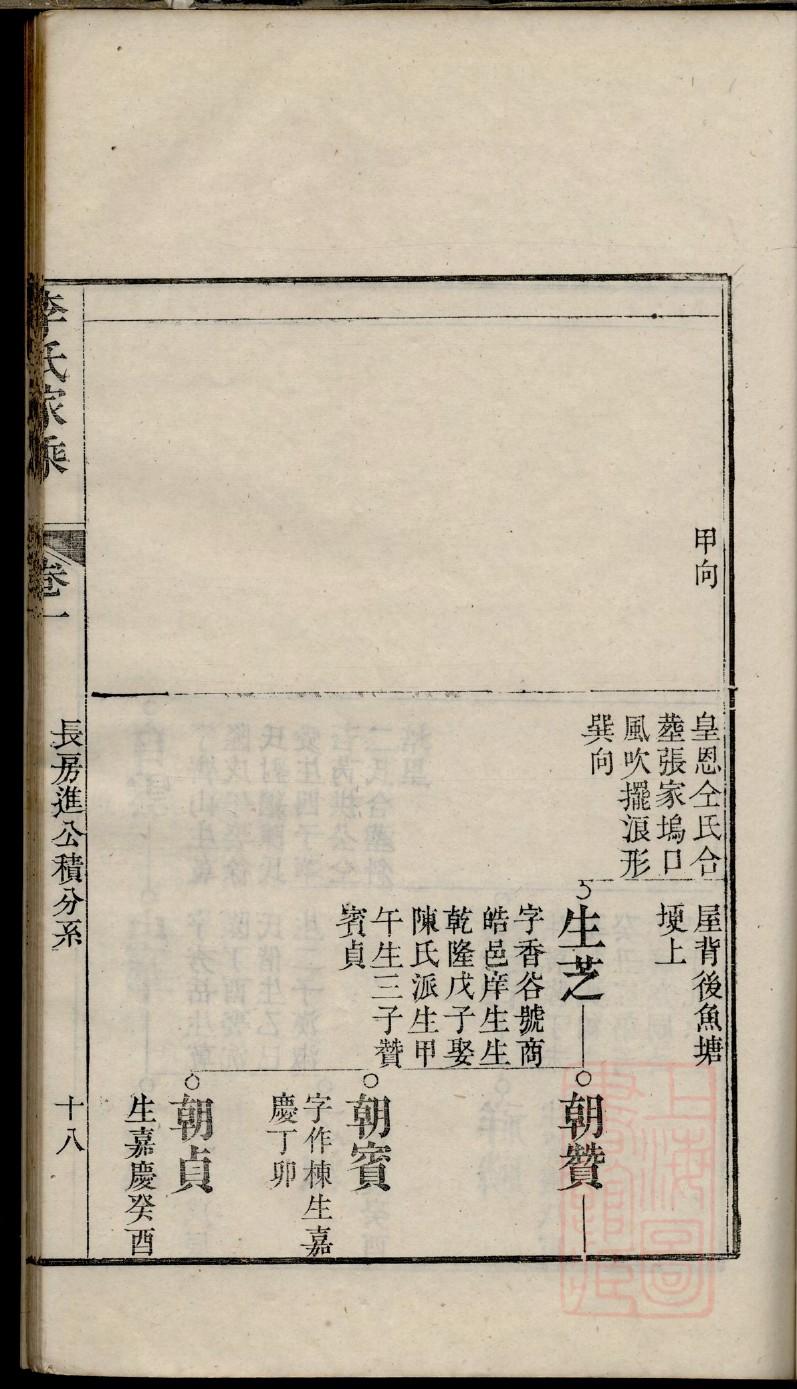 甲向
皇恩仝氏合
塟張家塢口
風吹擺浪形
巽向
屋背後魚塘
埂上
生芝
字香谷號商
皓邑庠生生
乾隆戊子娶
陳氏派生甲
午生三子贊
賓貞
朝贊
朝賓
字作棟生嘉
慶丁卯
朝貞
生嘉慶癸酉
李氏家乘
卷一
長房進公積分系
十八
上海圖